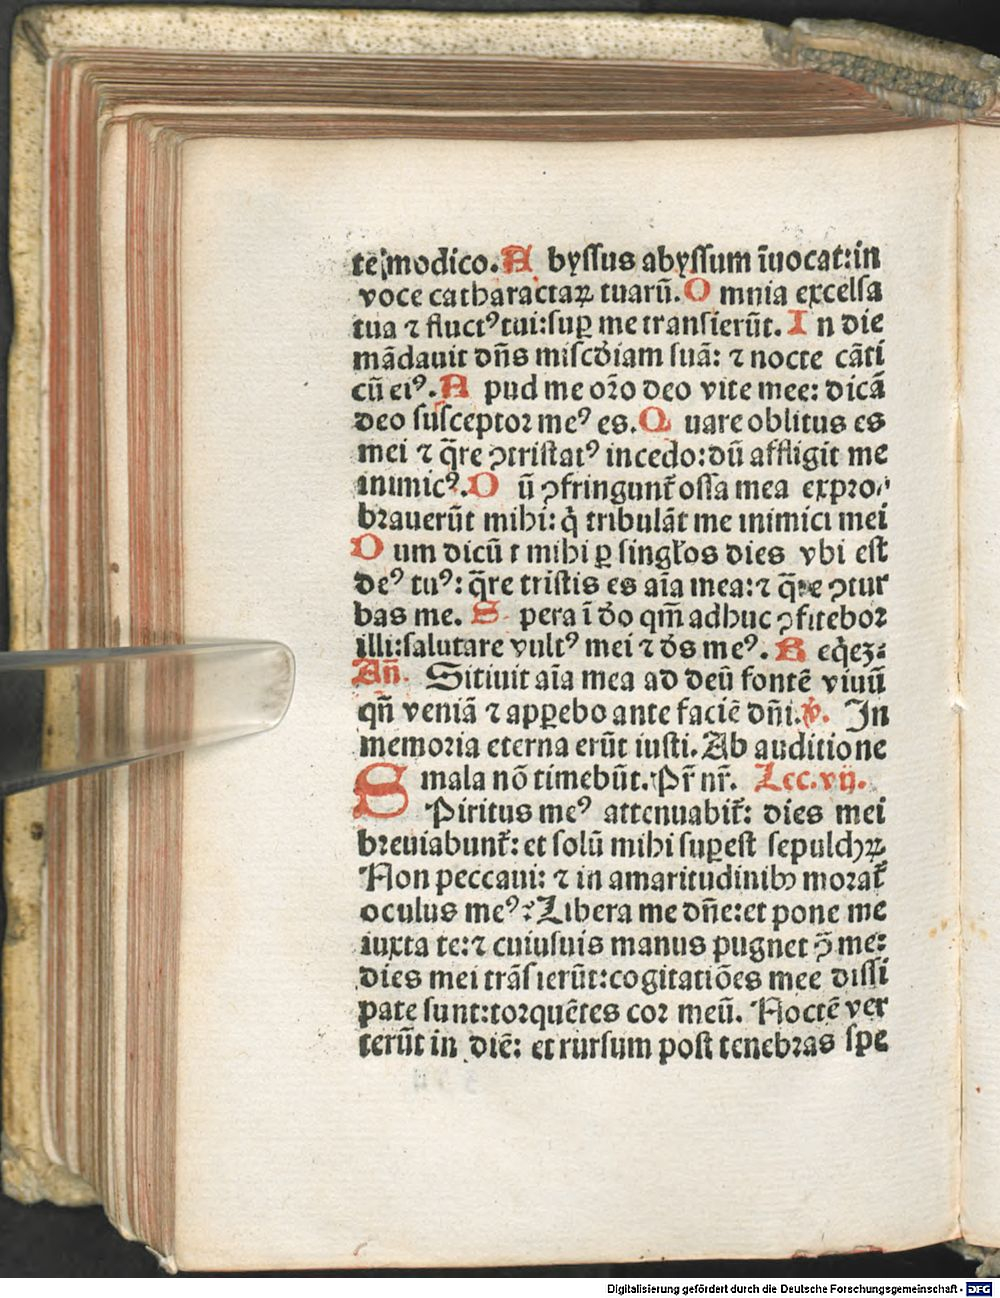 te modico. A byſſus abyſſum īuocat:in
voce catharactaꝝ tuarū. O mnia excelſa
tua ⁊ fluctꝰ tui:ſuꝑ me tranſierūt. I n die
mādauit dn̄s miſcḋiam ſuā: ⁊ nocte cāti
cū eiꝰ. A pud me oꝛ̄o deo vite mee: dicā
deo ſuſceptoꝛ meꝰ es. Q uare oblitus es
mei ⁊ q̄re ꝯtriſtatꝰ incedo:dū affligit me
inimicꝰ. D ū ꝯfringunt̄ oſſa mea expꝛo⸗
bꝛauerūt mihi: q̇ tribulāt me inimici mei
D um dicūt mihi ꝑ ſingľos dies vbi eſt
deꝰ tuꝰ: q̄re triſtis es aīa mea:⁊ q̄re ꝯtur
bas me. S pera ī ḋo qm̄ adhuc ꝯfiteboꝛ
illi:ſalutare vultꝰ mei ⁊ ḋs meꝰ. R eq̇eꝫ:
An̄. Sitiuit aīa mea ad deū fontē viuū
qn̄ veniā ⁊ apꝑebo ante faciē dn̄i. ℣. In
memoꝛia eterna erūt iuſti. Ab auditione
mala nō timebūt. Pr̄ nr̄. Lec. vij.
SPiritus meꝰ attenuabit̄: dies mei
bꝛeuiabunt̄: et ſolū mihi ſuꝑeſt ſepulchꝝ
Non peccaui: ⁊ in amaritudinibꝰ moꝛat̄
oculus meꝰ: Libera me dn̄e:et pone me
iuxta te:⁊ cuiuſuis manus pugnet ꝯ̄ me:
dies mei trāſierūt:cogitatiōes mee diſſi
pate ſunt:toꝛquētes coꝛ meū. Noctē ver
terūt in diē: et rurſum poſt tenebꝛas ſpe
Digitalisierung gefördert durch die Deutsche Forschungsgemeinschaft - DFG